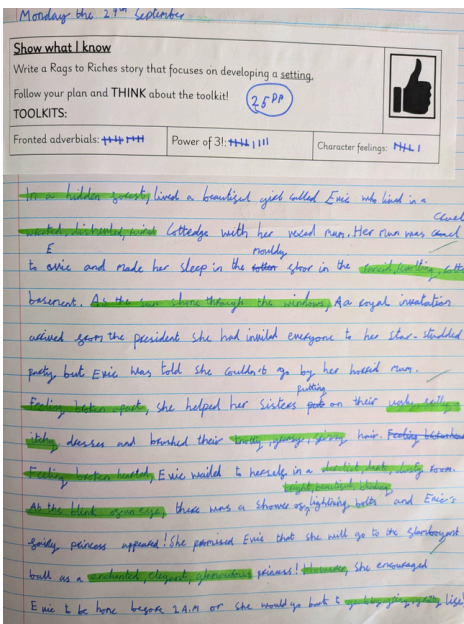 Monday the 29th September
Show what I know
Write a Rags to Riches story that focuses on developing a setting.
Follow your plan and THINK about the toolkit!
25 PP
TOOLKITS:
Fronted adverbials:
Power of 3!:
Character feelings:
In a hidden forest, lived a beautiful girl called Evie who lived in a
cruel
Cottedge with her mum. Her mum was
E mouldy
to evie and made her sleep in the rotten floor in the
basement. As the sun shone through the windows, a royal invatation
arived from the president she had invited everyone to her star-studded
party but Evie was told she couldn't go by her horrid mum.
putting
Feeling broken part, she helped her Sisters on their ugly, frilly,
itchy dresses and brushed their knotty, greasy, hair.
Feeling broken hearted, Evie wailed to herself in a room.
bright, beautiful,
At the blink of an eye, there was a shower of lightning bolts and Evie's
princess appeared! She promised Evie that she will go to the flamboyant
ball as a enchanted, elegant, glamourous princess! However, she encouraged
Evie to be home before 2A.M or she would go back to